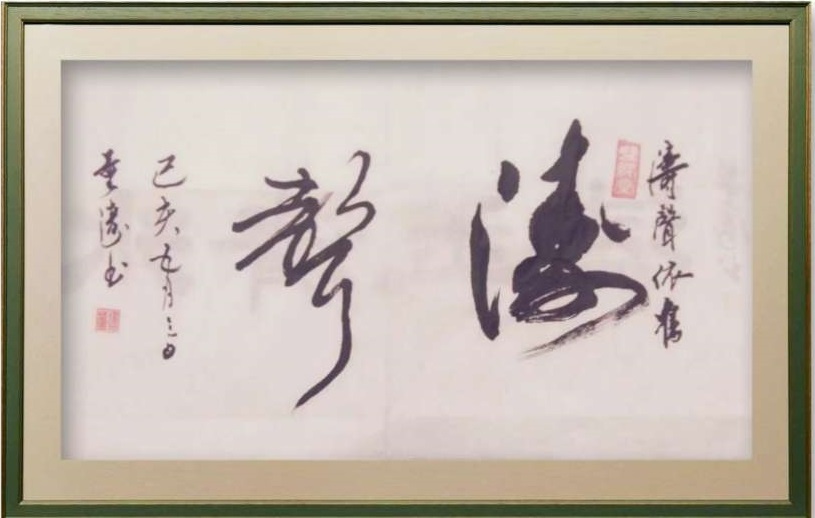 濤聲依舊
濤聲
己亥五月三日